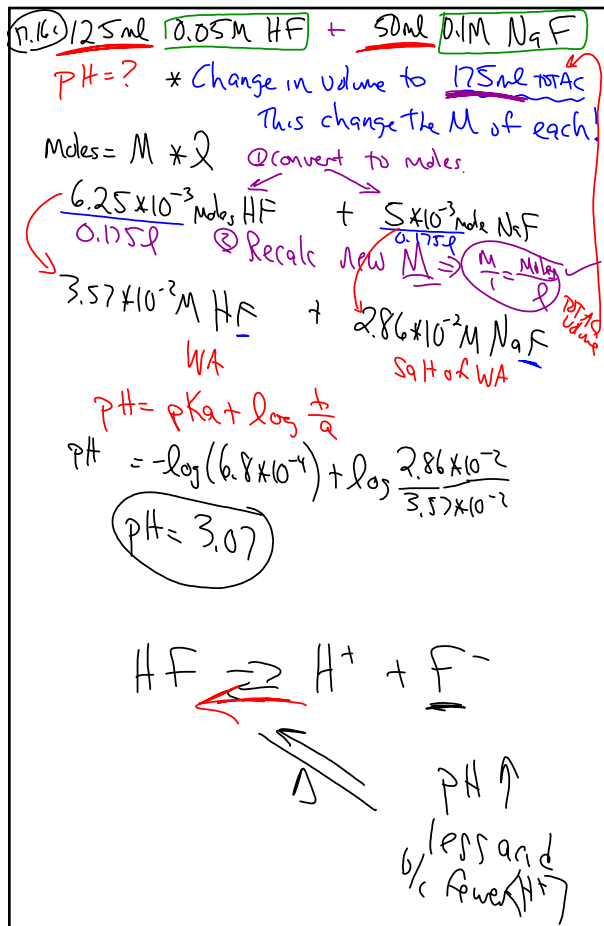 17.16c) 125ml 0.05M HF + 50ml 0.1M NaF
pH = ? * Change in volume to 175ml TOTAL
This change the M of each!
Moles = M * l ① convert to moles.
6.25*10⁻³ moles HF + 5*10⁻³ mole NaF
0.175l 0.175l
② Recalc new M => M/1 = Moles/l
TOTAL Volume
3.57*10⁻²M HF + 2.86*10⁻²M NaF
WA Salt of WA
pH = pKa + log b/a
pH = -log(6.8*10⁻⁴) + log 2.86*10⁻²/3.57*10⁻²
pH = 3.07
HF ⇌ H⁺ + F⁻
pH ↑
less acid
b/c fewer (H⁺)